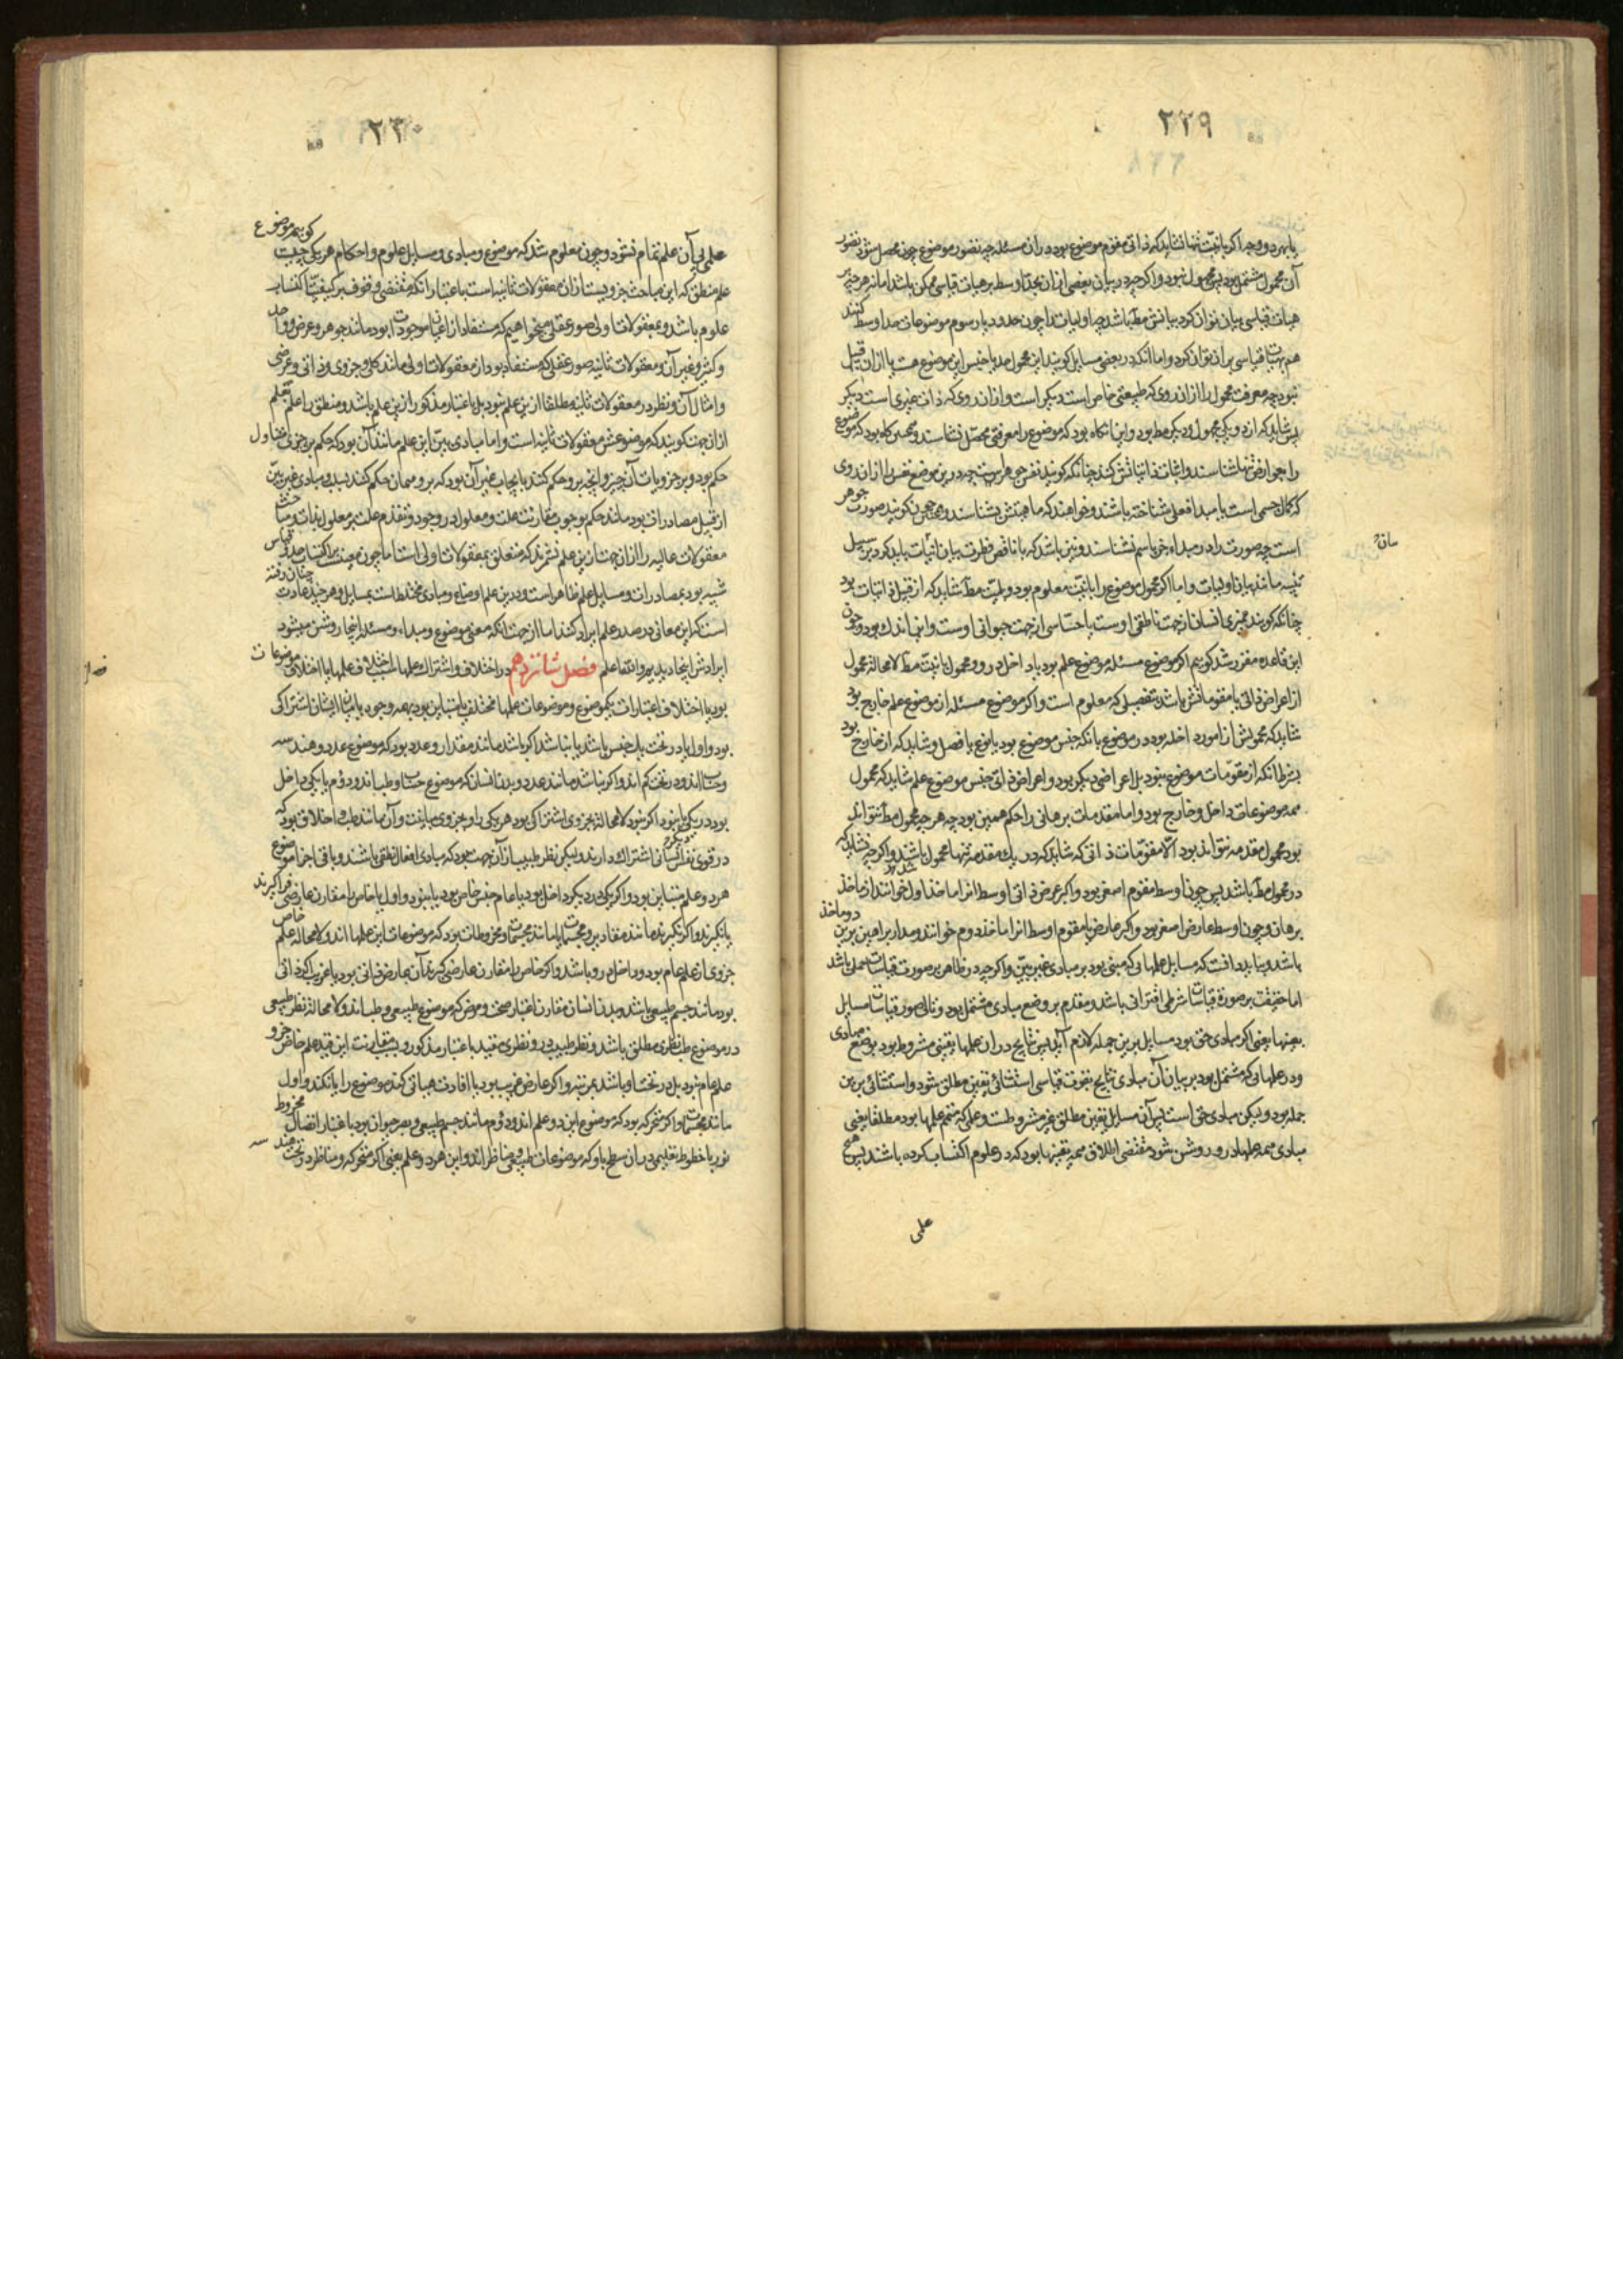 ٢٢٩
یا بهر دو وجه اگر بانیّت تنها نشاید که ذاتی مقوم موضوع بود در ان مسئله چه تصور موضوع چون محصل شود تصور
آن محمول مشتمل بود پس مجهول نبود و اگر چه در بیان بعضی از ان بحد اوسط بر هیات قیاسی ممکن باشد اما نه هر چه بر
هیات قیاسی بیان توان کرد بیانش مط باشد چه اولیات را چون حدود یا رسوم موضوعات حد اوسط کنند
هم بهیات قیاسی بر ان توان کرد و اما آنکه در بعضی مسایل گویند این محمول حد یا جنس این موضوع هست یا از ان قبیل
نبود چه معرفت محمول را از ان روی که طبیعتی خاص است دیگر است و از ان روی که ذات چیزی است دیگر
پس شاید که از دو یکی مجهول و دیگر مط بود و این آنگاه بود که موضوع را معرفتی محصّل نشناسند و همچنین گاه بود که موضوع
را بعوارض تنها شناسند و اثبات ذاتیاتش کنند چنانکه گویند نفس جوهر است چه درین موضع نفس را از ان روی
که کمال جسمی است یا مبدا فعلی شناخته باشند و خواهند که ماهیتش بشناسند و همچون گویند صورت جوهر
است چه صورت را در مبداء جز باسم نشناسند و نیز باشد که با ناقص فطرت بیان اثبات باید کرد بر سبیل
تنبیه مانند بیان اولیات و اما اگر محمول موضوع را بانیّت معلوم بود و بلمیّت مط شاید که از قبیل ذاتیات بود
چنانکه گویند ممیزی انسان از جهت ناطقی اوست یا حسّاسی از جهت حیوانی اوست و اینها اندک بود و چون
این قاعده مقرر شد گوییم اگر موضوع مسئله موضوع علم بود یا داخل در و و محمول بانیّت مط لا محاله محمول
از اعراض ذاتی یا مقوماتش باشد بتفصیلی که معلوم است و اگر موضوع مسئله از موضوع علم خارج بود
شاید که محمولش از امور داخله بود در موضوع یا نکه جنس موضوع بود یا نوع یا فصل و شاید که از خارج بود
بشرط آنکه از مقوّمات موضوع نبود بل اعراضی دیگر بود و اعراض ذاتی جنس موضوع علم شاید که محمول
همه موضوعات داخل و خارج بود و اما مقدمات برهانی را حکم همین بود چه هر چه محمول مط نتواند
بود محمول مقدمه نتواند بود الّا مقوّمات ذاتی که شاید که در یک مقدمه تنها محمول باشند و اگر چه نشاید که
در محمول مط باشد پس چون اوسط مقوم اصغر بود و اکبر عرض ذاتی اوسط انرا ماخذ اول خوانند از ماخذ
برهان و چون اوسط عارض اصغر بود و اکبر عارض یا مقوم اوسط انرا ماخذ دوم خوانند و مدار براهین برین دو ماخذ
باشد و بباید دانست که مسایل علمهائی که مبنی بود بر مبادی غیر بیّن و اگر چه در ظاهر بر صورت قیاسات حملی باشد
اما حقیقت بر صورة قیاسات شرطی اقترانی باشد و مقدم بر وضع مبادی مشتمل بود و تالی صور قیاسات مسایل
بعینها یعنی اگر مبادی حق بود مسایل برین جمله لازم آید پس نتایج در ان علمها یقینی مشروط بود بوضع مبادی
و در علمهائی که مشتمل بود بر بیان آن مبادی نتایج بقوت قیاسی استثنائی یقین مطلق شود و استثنائی برین
جمله بود و لیکن مبادی حق است پس آن مسایل یقین مطلق غیر مشروطست و علمی که متمم علمها بود مطلقا یعنی
مبادی همه علمها در و روشن شود مقتضی اطلاق همه یقینها بود که در علوم اکتساب کرده باشند پس هیچ
علمی
٢٣٠
علمی بی آن علم تمام نشود و چون معلوم شد که موضوع و مبادی و مسایل علوم و احکام هر یکی چیست گوییم موضوع
علم منطق که این مباحث جزویست از ان معقولات ثانیه است باعتبار انکه مقتضی وقوف بر کیفیّت اکتساب
علوم باشد و بمعقولات اولی صور عقلی میخواهیم که مستفاد از اعیان موجودات بود مانند جوهر و عرض و واحد
و کثیر و غیر آن و معقولات ثانیه صور عقلی که مستفاد بود از معقولات اولی مانند کلی و جزوی و ذاتی و عرضی
و امثال آن و نظر در معقولات ثانیه مطلقا از ین علم نبود بل باعتبار مذکور ازین علم باشد و منطق را علم بعلم
از ان جهت گویند که موضوعش معقولات ثانیه است و اما مبادی بیّن این علم مانند آن بود که حکم بر جزوی متناول
حکم بود بر جزویات آن چیز و انچه برو حکم کنند بایجاب غیر آن بود که برو همان حکم کنند بسلب و مبادی غیر بیّن
از قبیل مصادرات بود مانند حکم بوجوب مقارنت علت و معلول در وجود و تقدم علت بر معلول بذات و مباحث
معقولات عالیه را از ان جهت ازین علم نشمرند که متعلق بمعقولات اولی است اما چون معین است بر اکتساب حد و قیاس
شبیه بود بمصادرات و مسایل علم ظاهر است و درین علم اوضاع و مبادی مختلط است بمسایل و هر چند عادت چنان رفته
است که این معانی در صدر علم ایراد کنند اما از جهت انکه معنی موضوع و مبداء و مسئله اینجا روشن میشود
ایرادش اینجا پدید بود و انتفاع علم فصل شانزدهم در اختلاف و اشتراک علمها اسباب اختلاف علمها یا اختلاف موضوعات
بود یا اختلاف اعتبارات یک موضوع و موضوعات علمها مختلف یا متباین بود بهمه وجوه یا میان ایشان اشتراکی
بود و اول یا در تحت یک جنس باشد یا نباشد اگر باشد مانند مقدار و عدد بود که موضوع عدد و هندسه
و حساب اند و در تحت کم اند و اگر نباشد مانند عدد و بدن انسان که موضوع حساب و طب اند و دوم یا یکی داخل
بود در یکی یا نبود اگر نبود لا محاله بجزوی اشتراکی بود هر یکی را و بجزوی مباینت و آن مانند طب و اخلاق بود که
در قوی نفس انسانی اشتراک دارند و لیکن نظر طبیب از آن جهت بود که مبادی افعال نطقی باشند و باقی اجزا موضوع
هر دو علم متباین بود و اگر یکی در دیگر داخل بود یا عام جنس خاص بود یا نبود و اول یا خاص را مقارن عارضی فراگیرند
یا نگیرند و اگر نگیرند مانند مقادیر و مجسمات یا مانند مجسمات و مخروطات بود که موضوعات این علمها اند و لا محاله علم خاص
جزوی از علم عام بود و داخل در و باشد و اگر خاص را مقارن عارضی گیرند آن عارض ذاتی بود یا غریب اگر ذاتی
بود مانند جسم طبیعی باشد و بدن انسان مقارن اعتبار صحت و مرض که موضوع طبیعی و طب اند و لا محاله نظر طبیعی
در موضوع طب نظری مطلق باشد و نظر طبیب در و نظری مقید باعتبار مذکور و بسبب مقارنت این قید علم خاص جزو
علم عام نبود بل در تحت او باشد بمرتبه و اگر عارض غریب بود یا افادت هیاتی کند موضوع را یا نکند و اول
مانند مجسمات و اکر متحرکه بود که موضوع این دو علم اند و دوم مانند جسم طبیعی و بصر حیوان بود باعتبار اتصال مخروط
نور یا خطوط تعلیمی در ان سطح یا و که موضوعات طبیعی و مناظر اند و این هر دو علم یعنی اکر متحرکه و مناظر در تحت هندسه